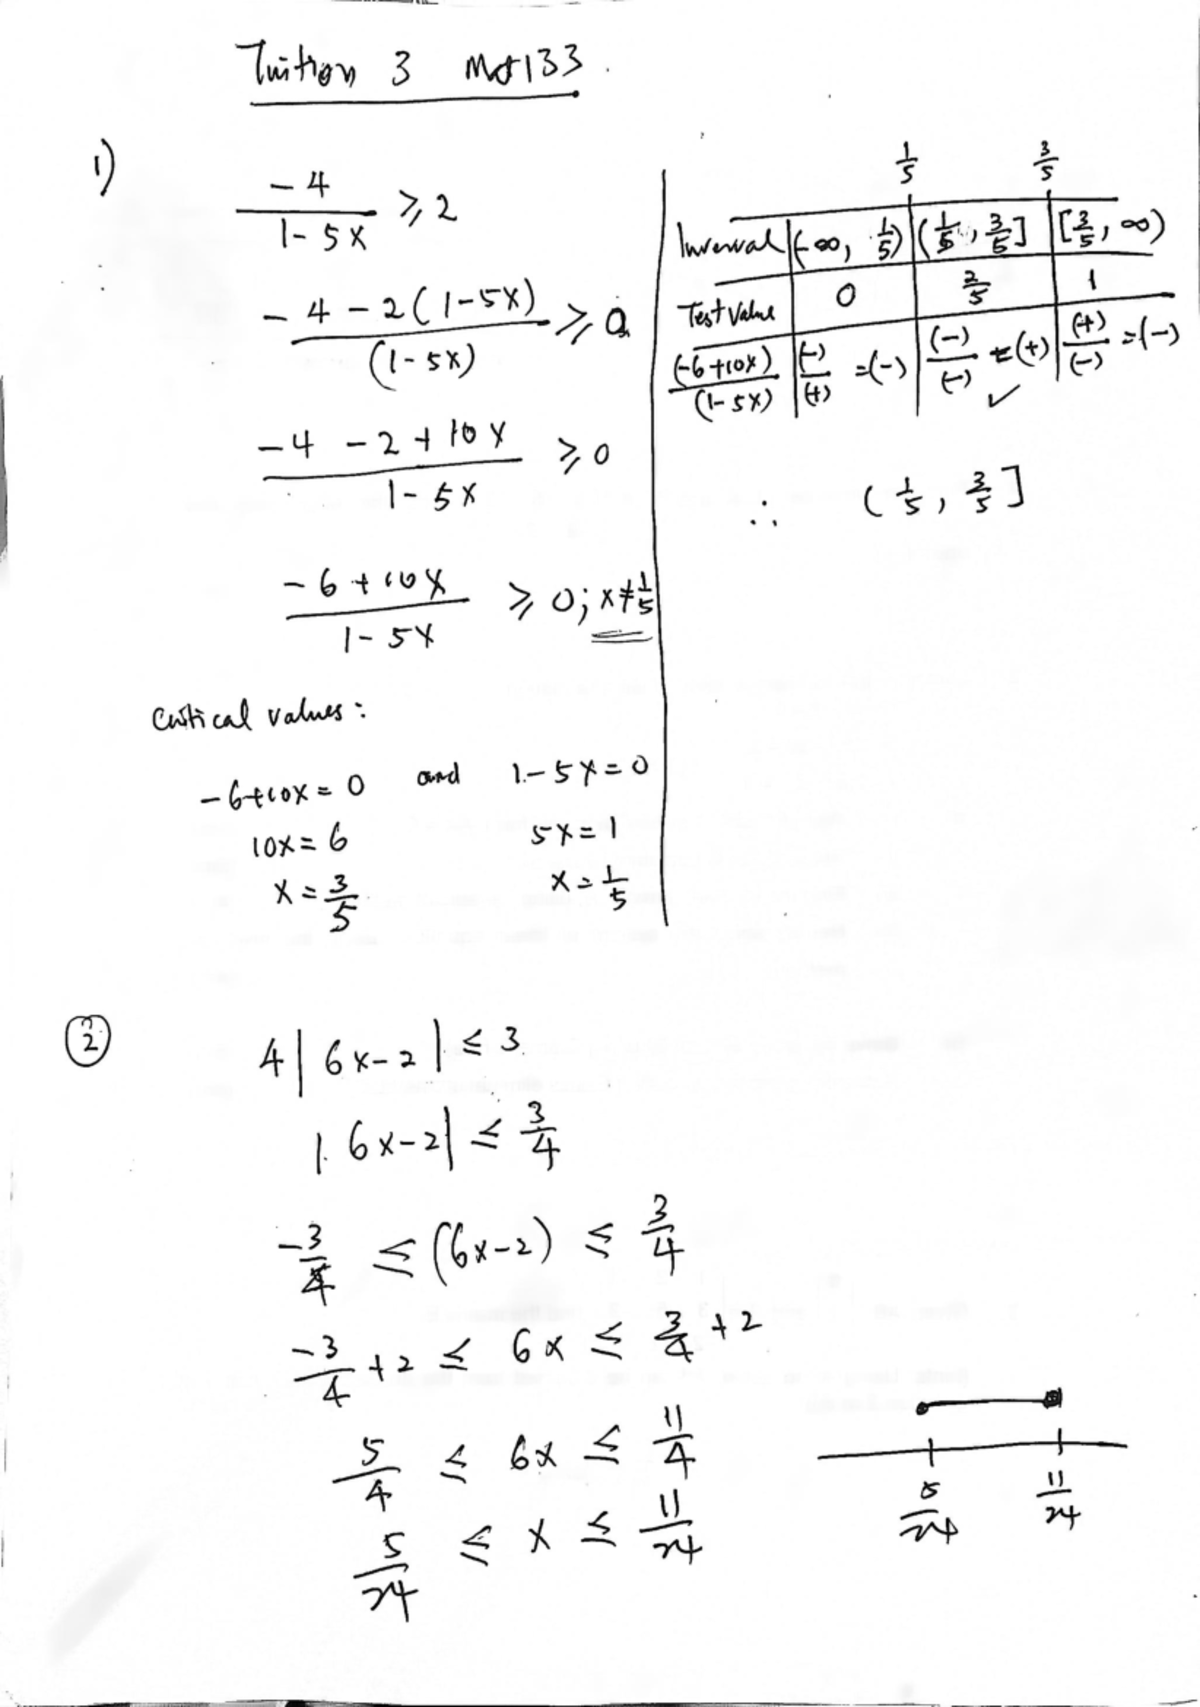 Tuition 3 Mat133
1)
-4/(1-5x) ⩾ 2
(-4-2(1-5x))/(1-5x) ⩾ 0
(-4-2+10x)/(1-5x) ⩾ 0
(-6+10x)/(1-5x) ⩾ 0; x≠1/5
Critical values:
-6+10x=0 and 1-5x=0
10x=6 5x=1
x=3/5 x=1/5
1/5 3/5
Interval (-∞, 1/5) (1/5, 3/5] [3/5, ∞)
Test Value 0 2/5 1
(-6+10x)/(1-5x) (-)/(+) =(-) (-)/(-) =(+) (+)/(-) =(-)
✓
∴ (1/5, 3/5]
2
4|6x-2| ≤ 3
|6x-2| ≤ 3/4
-3/4 ≤ (6x-2) ≤ 3/4
-3/4 +2 ≤ 6x ≤ 3/4 +2
5/4 ≤ 6x ≤ 11/4
5/24 ≤ x ≤ 11/24
5/24 11/24